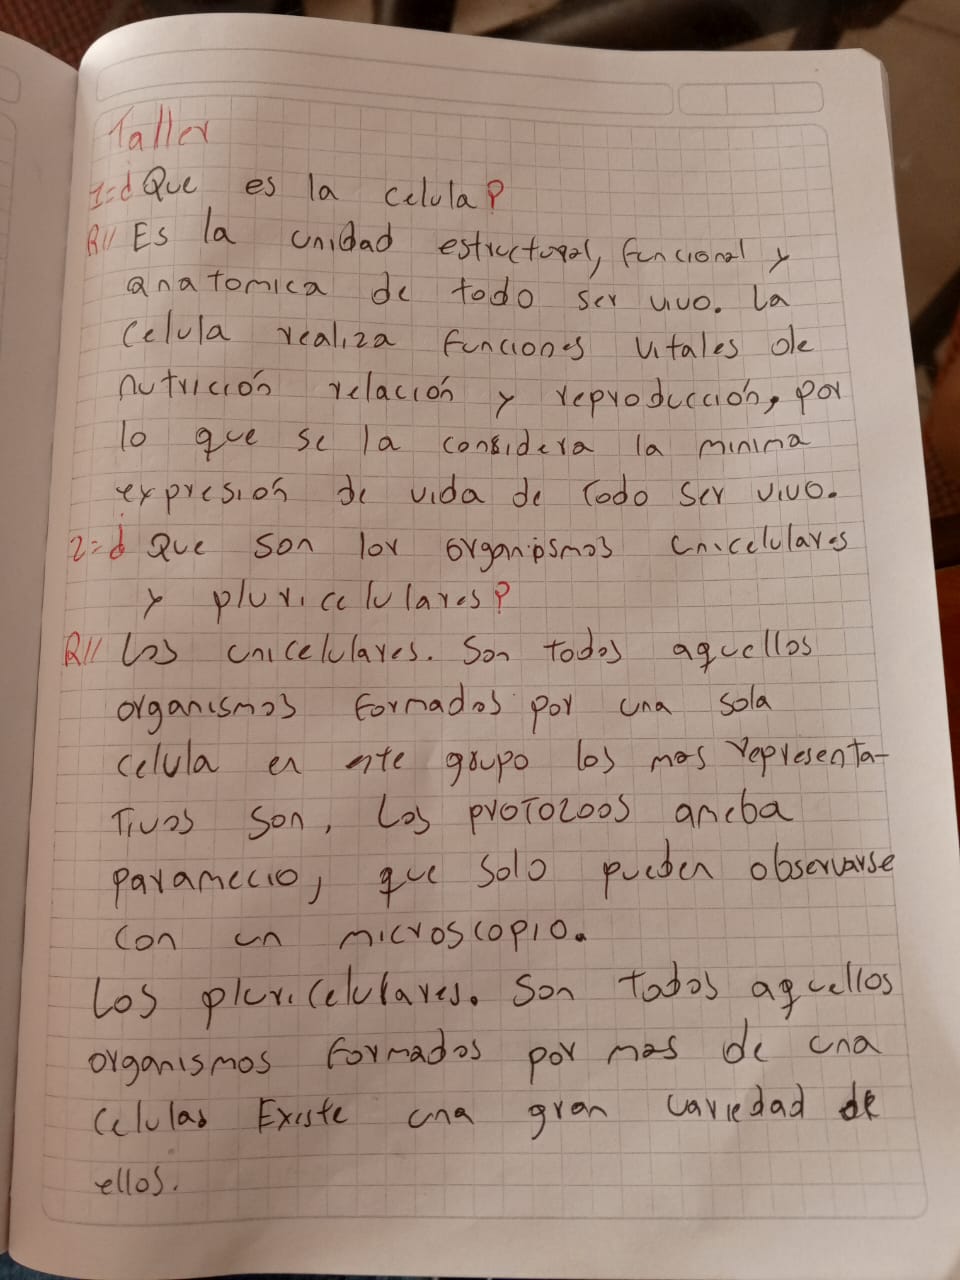 Taller
1=¿Que es la celula?
R// Es la unidad estructural, funcional y
anatomica de todo ser vivo. La
celula realiza funciones vitales de
nutrición relación y reproducción, por
lo que se la considera la minima
expresion de vida de todo ser vivo.
2=¿ Que son los organismos unicelulares
y pluricelulares?
R// Los unicelulares. Son todos aquellos
organismos formados por una sola
celula en este grupo los mas representa-
tivos son, Los protozoos ameba
paramecio, que solo pueden observarse
con un microscopio.
Los pluricelulares. Son todos aquellos
organismos formados por mas de una
celulas Existe una gran variedad de
ellos.